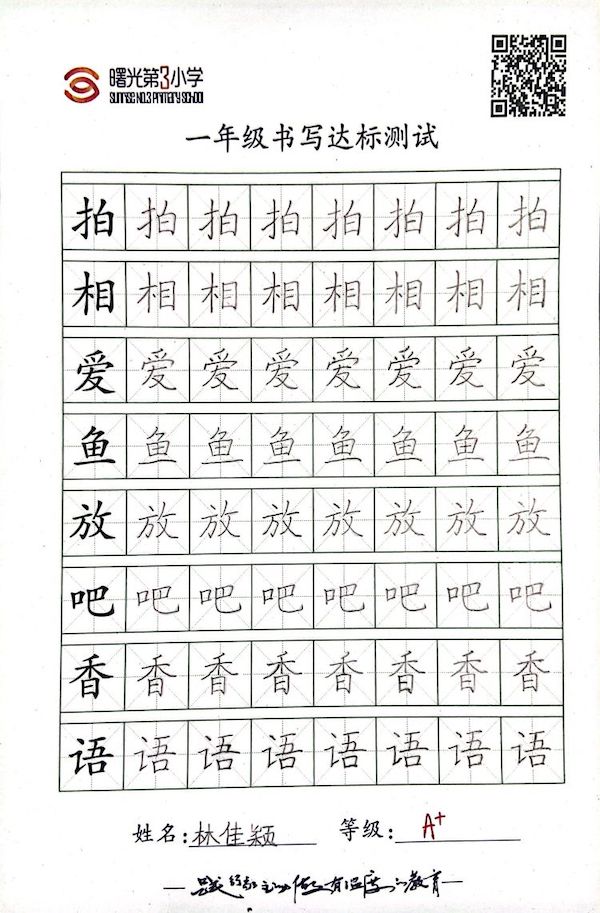 曙光第3小学
SUNRISE NO.3 PRIMARY SCHOOL
一年级书写达标测试
拍 拍 拍 拍 拍 拍 拍 拍
相 相 相 相 相 相 相 相
爱 爱 爱 爱 爱 爱 爱 爱
鱼 鱼 鱼 鱼 鱼 鱼 鱼 鱼
放 放 放 放 放 放 放 放
吧 吧 吧 吧 吧 吧 吧 吧
香 香 香 香 香 香 香 香
语 语 语 语 语 语 语 语
姓名:林佳颖 等级:A+
做有温度的教育